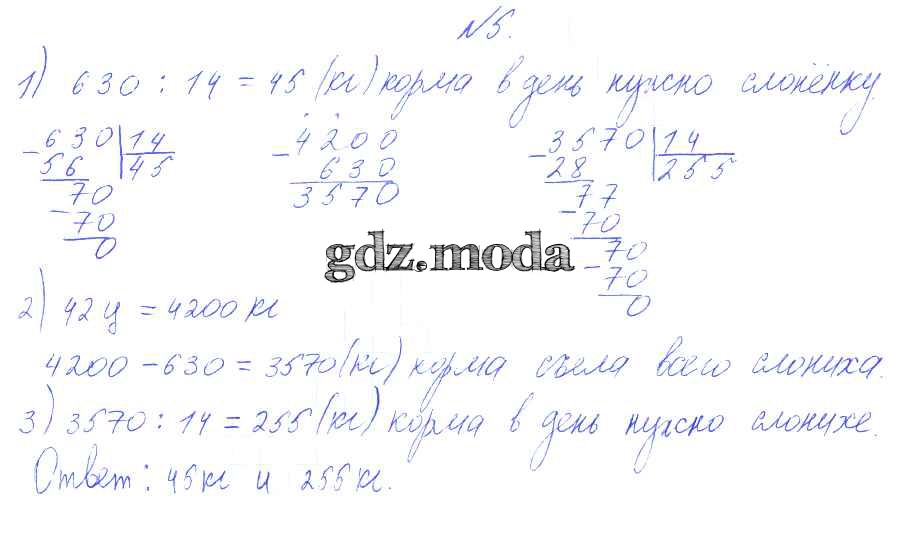 №5.
1) 630 : 14 = 45 (кг) корма в день нужно слонёнку.
630 | 14
56 45
70
70
0
4200
630
3570
3570 | 14
28 255
77
70
70
70
0
gdz.moda
2) 42 ц = 4200 кг
4200 - 630 = 3570 (кг) корма съела всего слониха.
3) 3570 : 14 = 255 (кг) корма в день нужно слонихе.
Ответ: 45 кг и 255 кг.